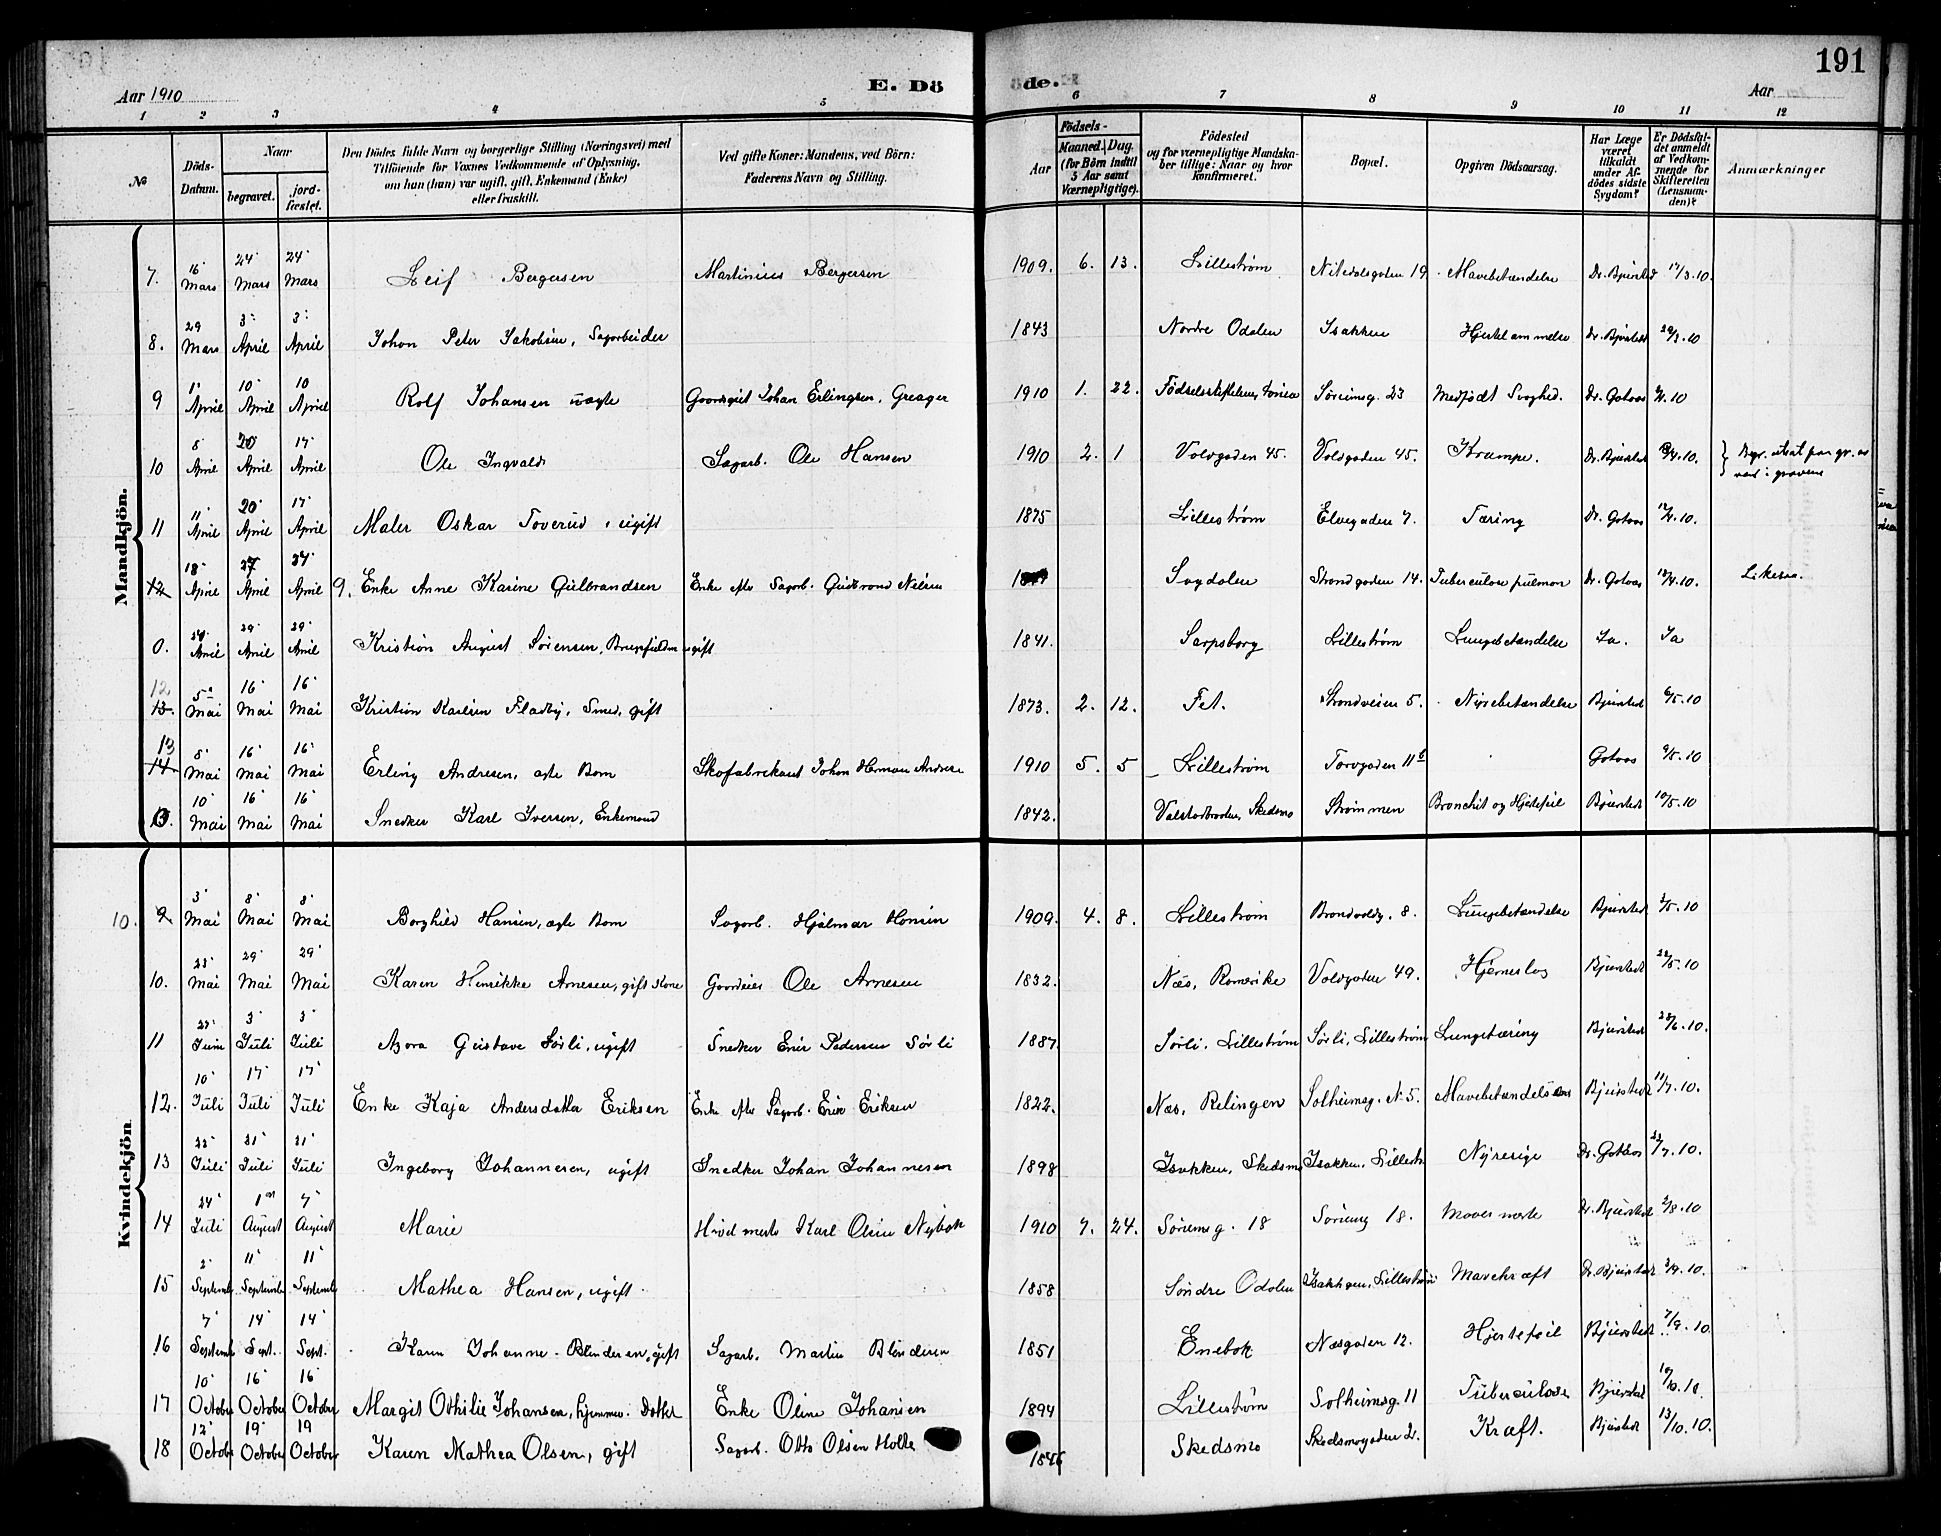 191
Aar 1910
E. Dö
de.
Aar
1 2 3 4 5 6 7 8 9 10 11 12
№
Döds-Datum.
Naar
begravet.
jord-fæstet.
Den Dödes fulde Navn og borgerlige Stilling (Næringsvei) med
Tilföiende for Voxnes Vedkommende af Oplysning,
om han (hun) var ugift, gift, Enkemand (Enke)
eller fraskilt.
Ved gifte Koner: Mandens, ved Börn:
Faderens Navn og Stilling.
Födsels-
Aar
Maaned. Dag.
(for Börn indtil
5 Aar samt
Værnepligtige).
Födested
og for værnepligtige Mandska-
ber tillige: Naar og hvor
konfirmeret.
Bopæl.
Opgiven Dödsaarsag.
Har Læge
været
tilkaldt
under Af-
dödes sidste
Sygdom?
Er Dödsfal-
det anmeldt
af Vedkom-
mende for
Skifteretten
(Lensman-
den)?
Anmærkninger
Mandkjön.
7. 16 Mars 24 Mars 24 Mars Leif Bergersen Martinius Bergersen 1909. 6. 13. Lillestrøm Nitedalsgaten 19 Mavebetændelse Dr. Bjursted 17/3.10.
8. 29 Mars 3 April 3 April Johan Peter Jakobsen, Sagarbeider 1843 Nordre Odalen Isakken Hjertelammelse Dr. Bjursted 29/3.10
9 1 April 10 April 10 April Rolf Johansen uægte Gaardsgut Johan Erlingsen, Greager 1910 1. 22. Fødselsstiftelsen, Sørumsg. 23 Medfødt Svaghed. Dr. Gotaas
10 8 April 20 April 17 April Ole Ingvald Sagarb. Ole Hansen 1910 2. 1 Voldgaden 45. Voldgaden 45. Krampe. Dr. Bjursted Begr. utsat paa gr. av vad i gravene
11 11 April 20 April 17 April Maler Oskar Toverud, ugift 1875 Lillestrøm Elvegaden 7. Tæring Dr. Gotaas 12/4.10.
12 18 April 27 April 24 April 9. Enke Anne Karine Gulbrandsen Enke efter Sagarb. Gudbrand Nilsen Sogdalen Strandgaden 14. Tuberculose pulmon Dr. Gotaas Likesaa.
0. 24 April 29 April 29 April Kristian August Sørensen, gift 1841. Sarpsborg Lillestrøm Lungebetændelse Ja. Ja
12 13. 5 Mai 16 Mai 16 Mai Kristian Karlsen Fladby, Smed, gift 1873. 2. 12. Fet. Strandveien 5. Nyrebetændelse Bjursted 6/5.10
13 14 8 Mai 16 Mai 16 Mai Erling Andresen, ægte Barn Skofabrikant Johan Herman Andrese 1910 5. 5 Lillestrøm Torvgaden 11 Gotaas 9/5.10
0. 10 Mai 16 Mai 16 Mai Snedker Karl Iversen, Enkemand 1842. Skedsmo Strømmen Bronchit og Hjertefeil Bjursted 10/5.10
Kvindekjön
10. 9 3 Mai 8 Mai 8 Mai Borghild Hansen, ægte Barn Sagarb. Hjalmar Hansen 1909. 4. 8. Lillestrøm Brandvoldg. 8. Lungebetændelse Bjursted 3/5.10
10. 23 Mai 29 Mai 29 Mai Karen Henrikke Arnesen, gift Kone Gaardeier Ole Arnesen 1832. Næs, Romerike Voldgaden 49. Hjerneslag Bjursted
11 27 Juni 3 Juli 3 Juli Azora Gustava Sørli, ugift Snedker Eric Pedersen Sørli 1887. Sørli, Lillestrøm Sørli, Lillestrøm Lungetæring Bjursted 28/6.10.
12. 10 Juli 17 Juli 17 Juli Enke Kaja Andersdatter Eriksen Enke efter Sagarb. Eric Eriksen 1822. Næs, Relingen Solheimsg. N 5. Mavebetændelse Bjursted 11/7.10.
13 Juli 31 Juli 31 Juli Ingeborg Johannesen, ugift Snedker Johan Johannesen 1898 Isakken, Skedsmo Isakken, Lillestr Nyresyge Dr. Gotaas
14 24 Juli 1 August 7 August Marie Karl Olsen Nybak 1910 7. 24. Sørumsg. 18 Sørumsg 18. Dr. Bjursted 2/8.10
15 2 Septembr 11 Septembr 11 Septembr Mathea Hansen, ugift 1858 Søndre Odalen Isakken, Lillestrøm Mavekræft Dr. Bjursted 3/9.10.
16 7 Septembr 14 Sept. 14 Sept. Karen Johanne Blinderen, gift Sagarb. Martin Blinderen 1851 Enebak Næsgaden 12. Hjertefeil Bjursted 7/9.10.
17 10 October 16 October 16 October Margit Othilie Johansen, hjemmev. Datter Enke Oline Johansen 1894 Lillestrøm Solheimsg. 11 Tuberculose Bjursted
18 12 October 19 October 19 October Karen Mathea Olsen, gift Sagarb. Otto Olsen Holte 1846 Skedsmo Skedsmogaden 2. Kræft. Bjursted 13/10.10.